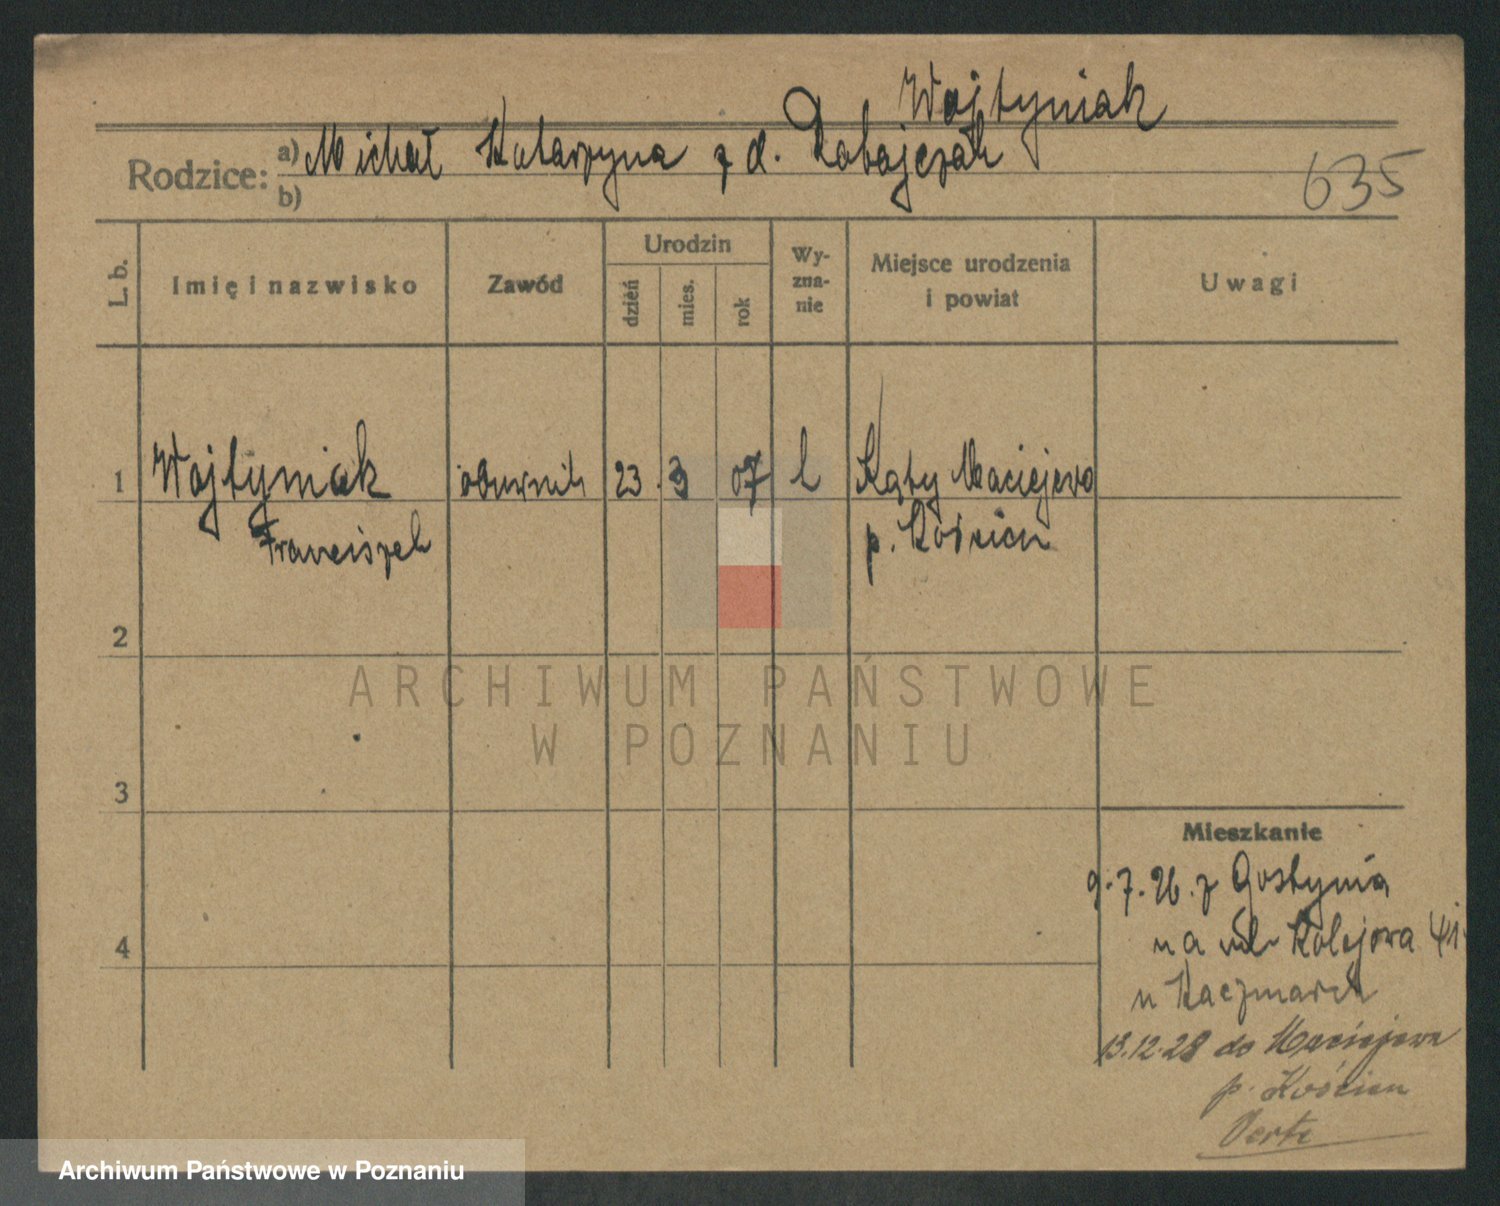 Wojtyniak
Rodzice: a) Michał Katarzyna z d. Ratajczak
b)
635
L. b.
Imię i nazwisko
Zawód
Urodzin
dzień
mies.
rok
Wy-
zna-
nie
Miejsce urodzenia
i powiat
Uwagi
1 Wojtyniak obuwnik 23. 3 07 k Kąty Maciejewo
Franciszek p. Kościan
2
ARCHIWUM PAŃSTWOWE
W POZNANIU
3
Mieszkanie
9.7.26. z Gostynia
4
na ul Kolejowa 41
u Kaczmarek
13.12.28 do Maciejewa
p. Kościan
Verte
Archiwum Państwowe w Poznaniu